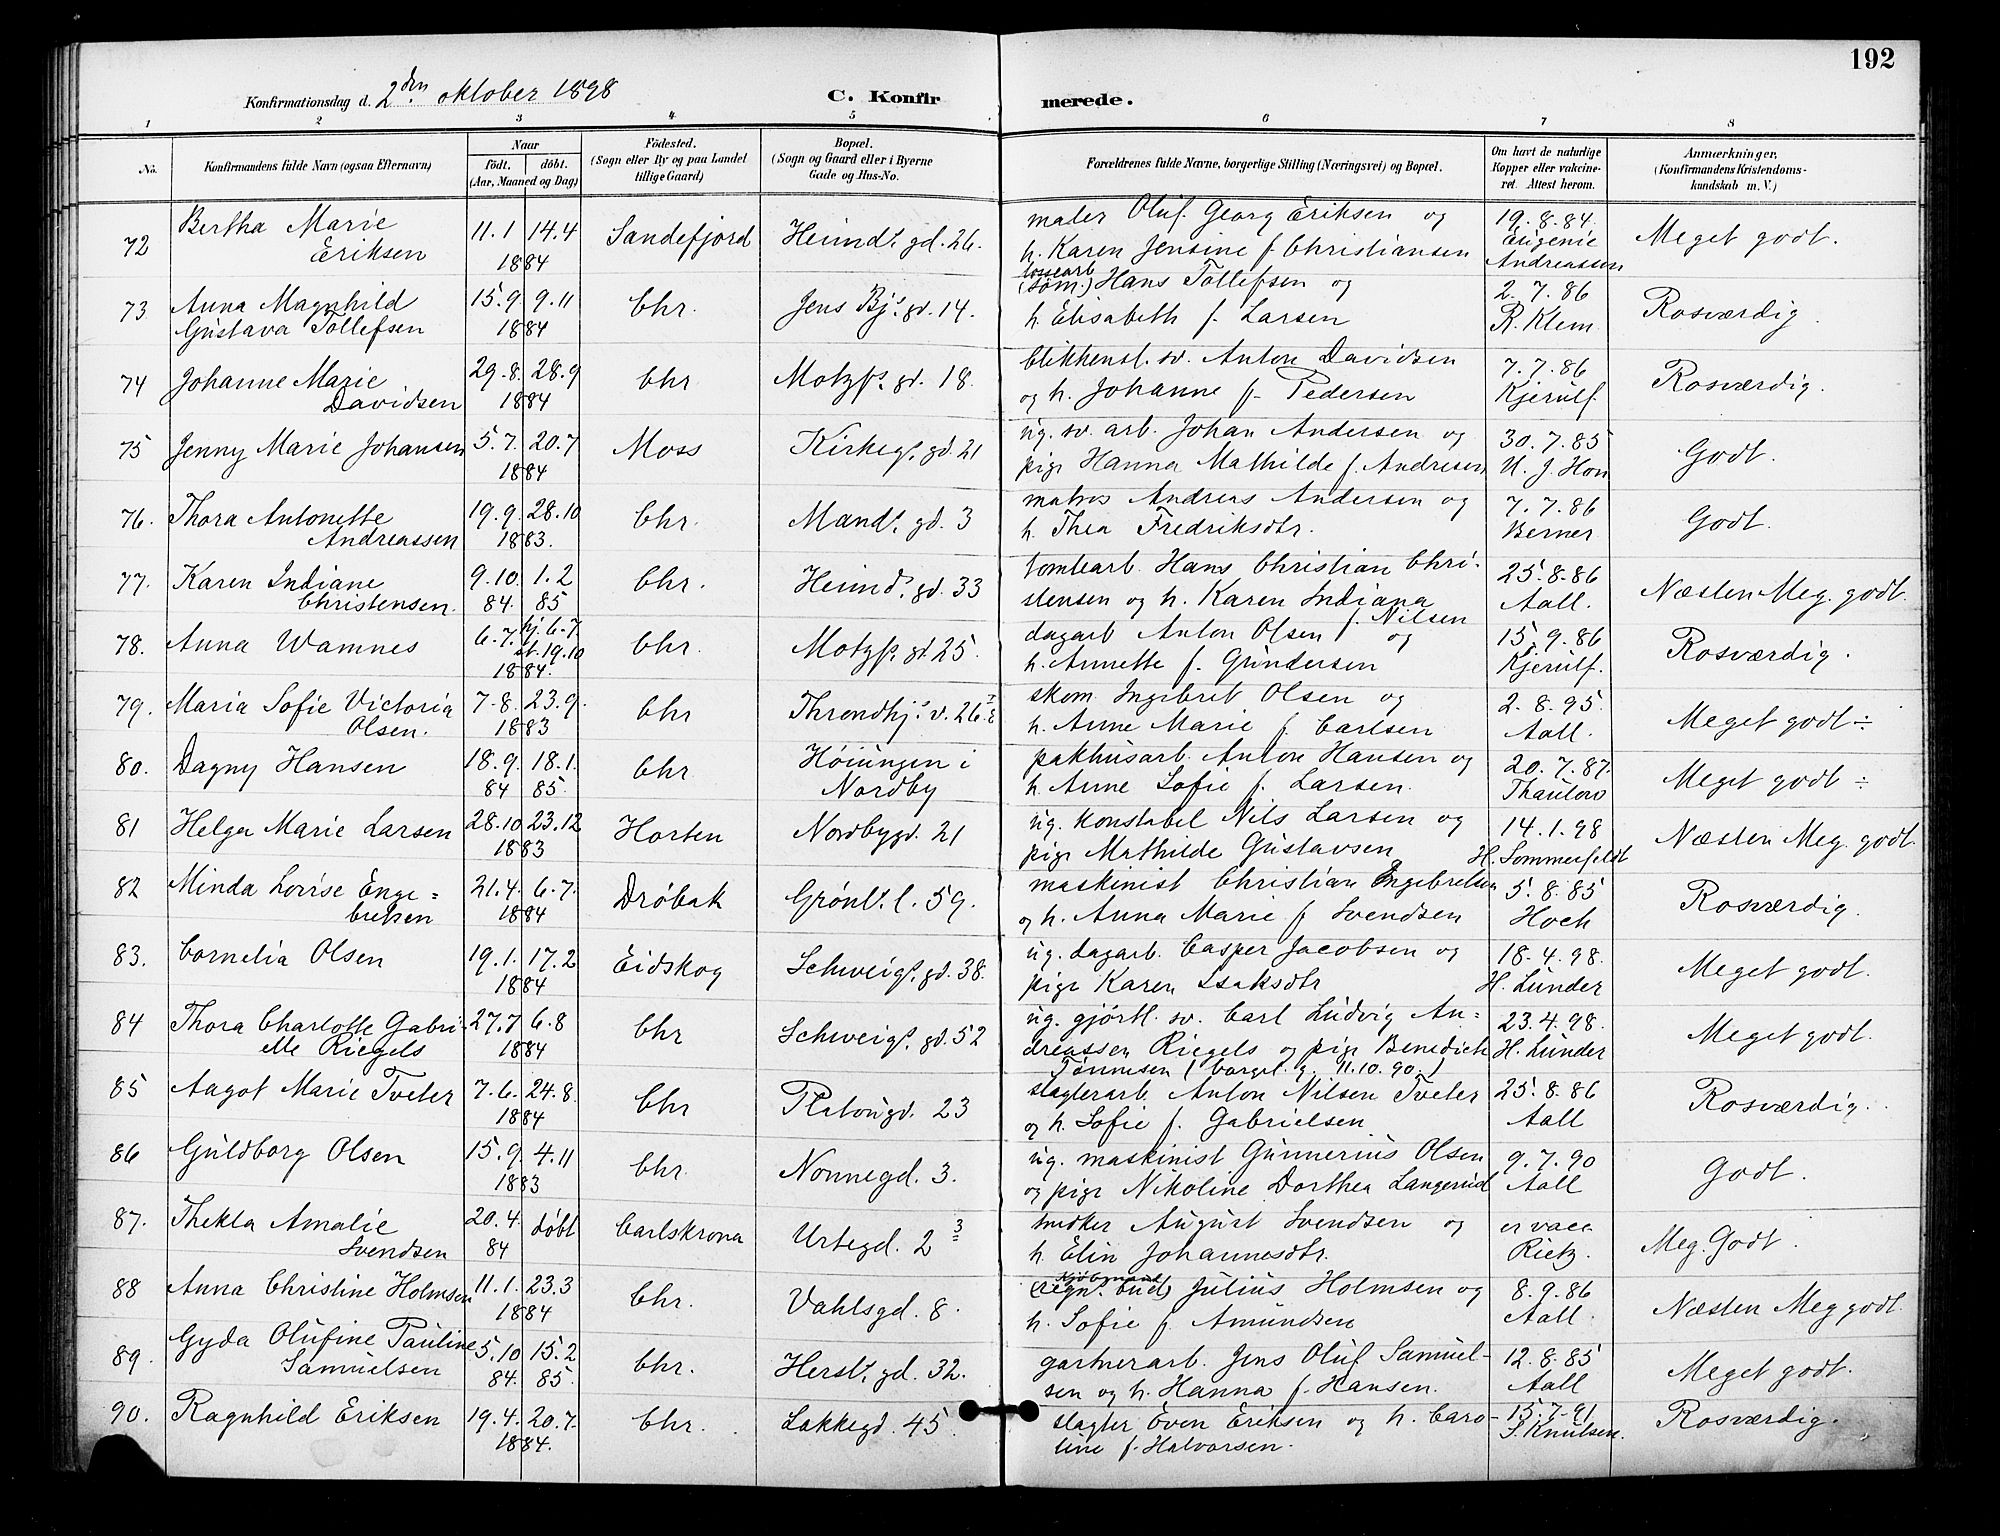 192
Konfirmationsdag d. 2den oktober 1898 C. Konfirmerede.
1 2 3 4 5 6 7 8
No. Konfirmandens fulde Navn (ogsaa Efternavn) Naar født. døbt. (Aar, Maaned og Dag) Fødested. (Sogn eller By og paa Landet tillige Gaard) Bopæl. (Sogn og Gaard eller i Byerne Gade og Hus-No. Forældrenes fulde Navne, borgerlige Stilling (Næringsvei) og Bopæl. Om havt de naturlige Kopper eller vakcineret. Attest herom. Anmærkninger, (Konfirmandens Kristendomskundskab m. V.)
72 Bertha Marie Eriksen 11.1 14.4 1884 Sandefjord Heimds. gd. 26. maler Oluf Georg Eriksen og
h. Karen Jensine f. Christiansen 19.8.84. Eugenie Andreassen Meget godt.
73 Anna Magnhild Gustava Tollefsen 15.9. 9.11 1884 Chr. Jens Bjs. gd. 14. lossearb (søm.) Hans Tollefsen og
h. Elisabeth f. Larsen 2.7.86 R. Klem Rosværdig.
74 Johanne Marie Davidsen 29.8. 28.9 1884 Chr Motzfs. gd. 18. blikkensl. sv. Anton Davidsen
og h. Johanne f. Pedersen 7.7.86 Kjerulf. Rosværdig.
75 Jenny Marie Johansen 5.7. 20.7 1884 Moss Kirkegs. gd. 21 ug. sv. arb. Johan Andersen og
pige Hanna Mathilde f. Andresen 30.7.85 Godt.
76. Thora Antonette Andreassen 19.9. 28.10 1883. Chr. Mands. gd. 3 matros Andreas Andersen og
h. Thea Fredriksdtr. 7.7.86 Berner Godt.
77. Karen Indiane Christensen. 9.10. 1.2 84. 85 Chr. Heimds. gd. 33 tomtearb. Hans Christian Chri-
stensen og h. Karen Indiana f. Nilsen 25.8.86 Aall. Næsten Meg. godt.
78. Anna Wamnes 6.7. hj. 6.7 st. 19.10 1884. Chr. Motzfs. gd. 25. dagarb Anton Olsen og
h. Annette f. Gundersen 15.9.86 Kjerulf. Rosværdig.
79. Maria Sofie Victoria Olsen. 7.8. 23.9. 1883 Chr Throndhjs. v. 26. skom. Ingebret Olsen og
h. Anne Marie f. Carlsen 2.8.95. Aall. Meget godt ÷
80. Dagny Hansen 18.9. 18.1. 84 85. Chr Høiungen i Nordby pakhusarb. Anton Hansen og
h. Anne Sofie f. Larsen. 20.7.87. Thaulow Meget godt ÷
81 Helga Marie Larsen 28.10 23.12 1883 Horten Nordbygd. 21 ug. konstabel Nils Larsen og
pige Mathilde Gustavsen 14.1.98 H. Sommerfeldt Næsten Meg. godt.
82 Minda Lovise Enge= bretsen 21.4. 6.7. 1884 Drøbak Grønl. l. 59. maskinist Christian Engebretsen
og h. Anna Marie f. Svendsen 5.8.85 Hoch Rosværdig.
83. Cornelia Olsen 19.1. 17.2 1884 Eidskog Schweigs. gd. 38. ug. dagarb. Casper Jacobsen og
pige Karen Isaksdtr 18.4.98. H. Lunder Meget godt.
84 Thora Charlotte Gabri- elle Riegels 27.7 6.8 1884 Chr Schweigs. gd. 52 ug. gjørtl. sv. Carl Ludvig An=
dreassen Riegels og pige Benedicte
Tønnesen (borgel. g. 11.10.90.) 23.4.98. H. Lunder Meget godt.
85 Aagot Marie Tveter 7.6. 24.8. 1884 Chr Platougd. 23 slagterarb. Anton Nilsen Tveter
og h. Sofie f. Gabrielsen 25.8.86 Aall Rosværdig.
86 Guldborg Olsen 15.9. 4.11 1883 Chr. Nonnegd. 3. ug. maskinist Gunnerius Olsen
og pige Nikoline Dorthea Langerud 9.7.90 Aall Godt.
87. Thekla Amalie Svendsen 20.4. 84 døbt Carlskrona Urtegd. 2 3 snedker August Svendsen og
h. Elin Johannesdtr. er vacc Rietz. Meg. Godt.
88 Anna Christine Holmsen 11.1. 23.3 1884 Chr. Vahlsgd. 8. kjøbmand (regn. bud) Julius Holmsen og
h. Sofie f. Amundsen 8.9.86 Aall. Næsten Meg godt.
89. Gyda Olufine Pauline Samuelsen 5.10 15.2 84. 85. Chr. Hersls. gd. 32. gartnerarb. Jens Oluf Samuel-
sen og h. Hanna f. Hansen. 12.8.85 Aall Meget godt.
90. Ragnhild Eriksen 19.4. 20.7. 1884. Chr. Lakkegd. 45. slagter Even Eriksen og h. Caro-
line f. Halvorsen. 15.7.91 S. Knutsen. Rosværdig.